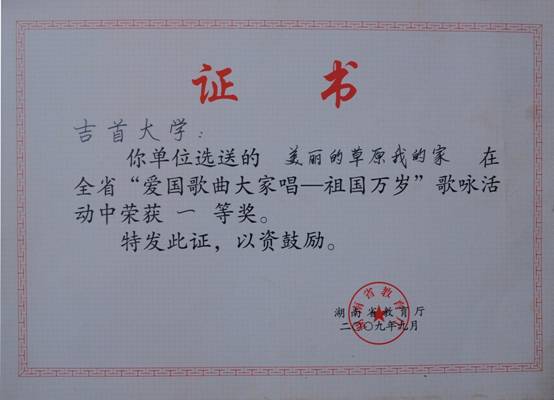 证 书
吉首大学：
你单位选送的 美丽的草原我的家 在
全省“爱国歌曲大家唱—祖国万岁”歌咏活
动中荣获 一 等奖。
特发此证，以资鼓励。
湖南省教育厅
湖南省教育厅
二〇〇九年九月